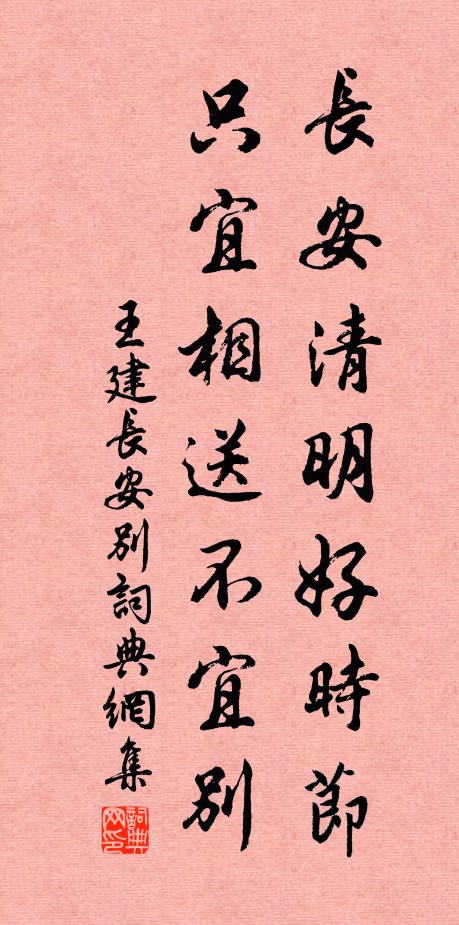 長安清明好時節
只宜相送不宜別
王建長安別詞典網集
詞典网印